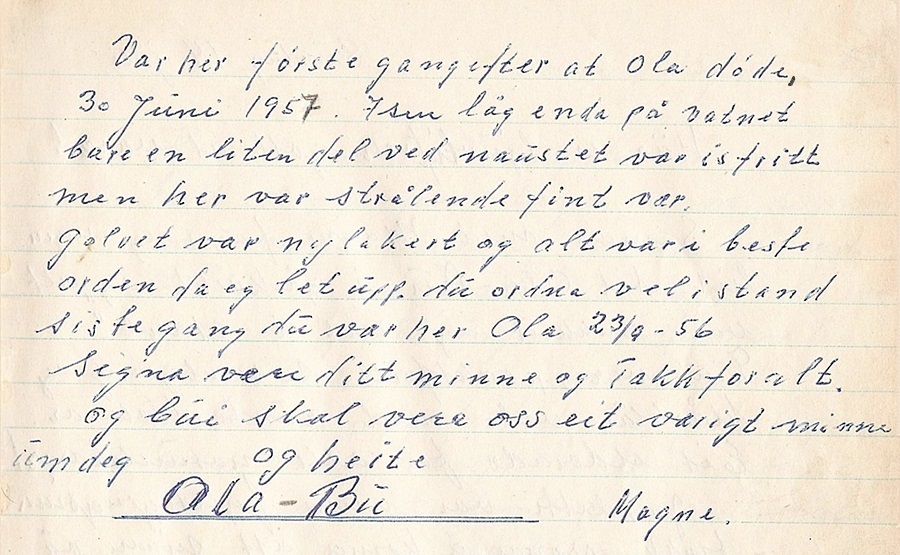 Var her første gang efter at Ola døde,
30 Juni 1957. Isen låg enda på vatnet
bare en liten del ved naustet var isfritt
men her var strålende fint vær.
Golvet var nylakert og alt var i beste
orden da eg let upp. du ordna vel i stand
siste gang du var her Ola 23/9-56
Signa vere ditt minne og Takk for alt.
og bui skal vere oss eit varigt minne
um deg og heite
Ola-Bu Magne.